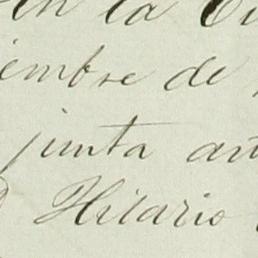 En la Ci
iembre de
junta an
Hilario